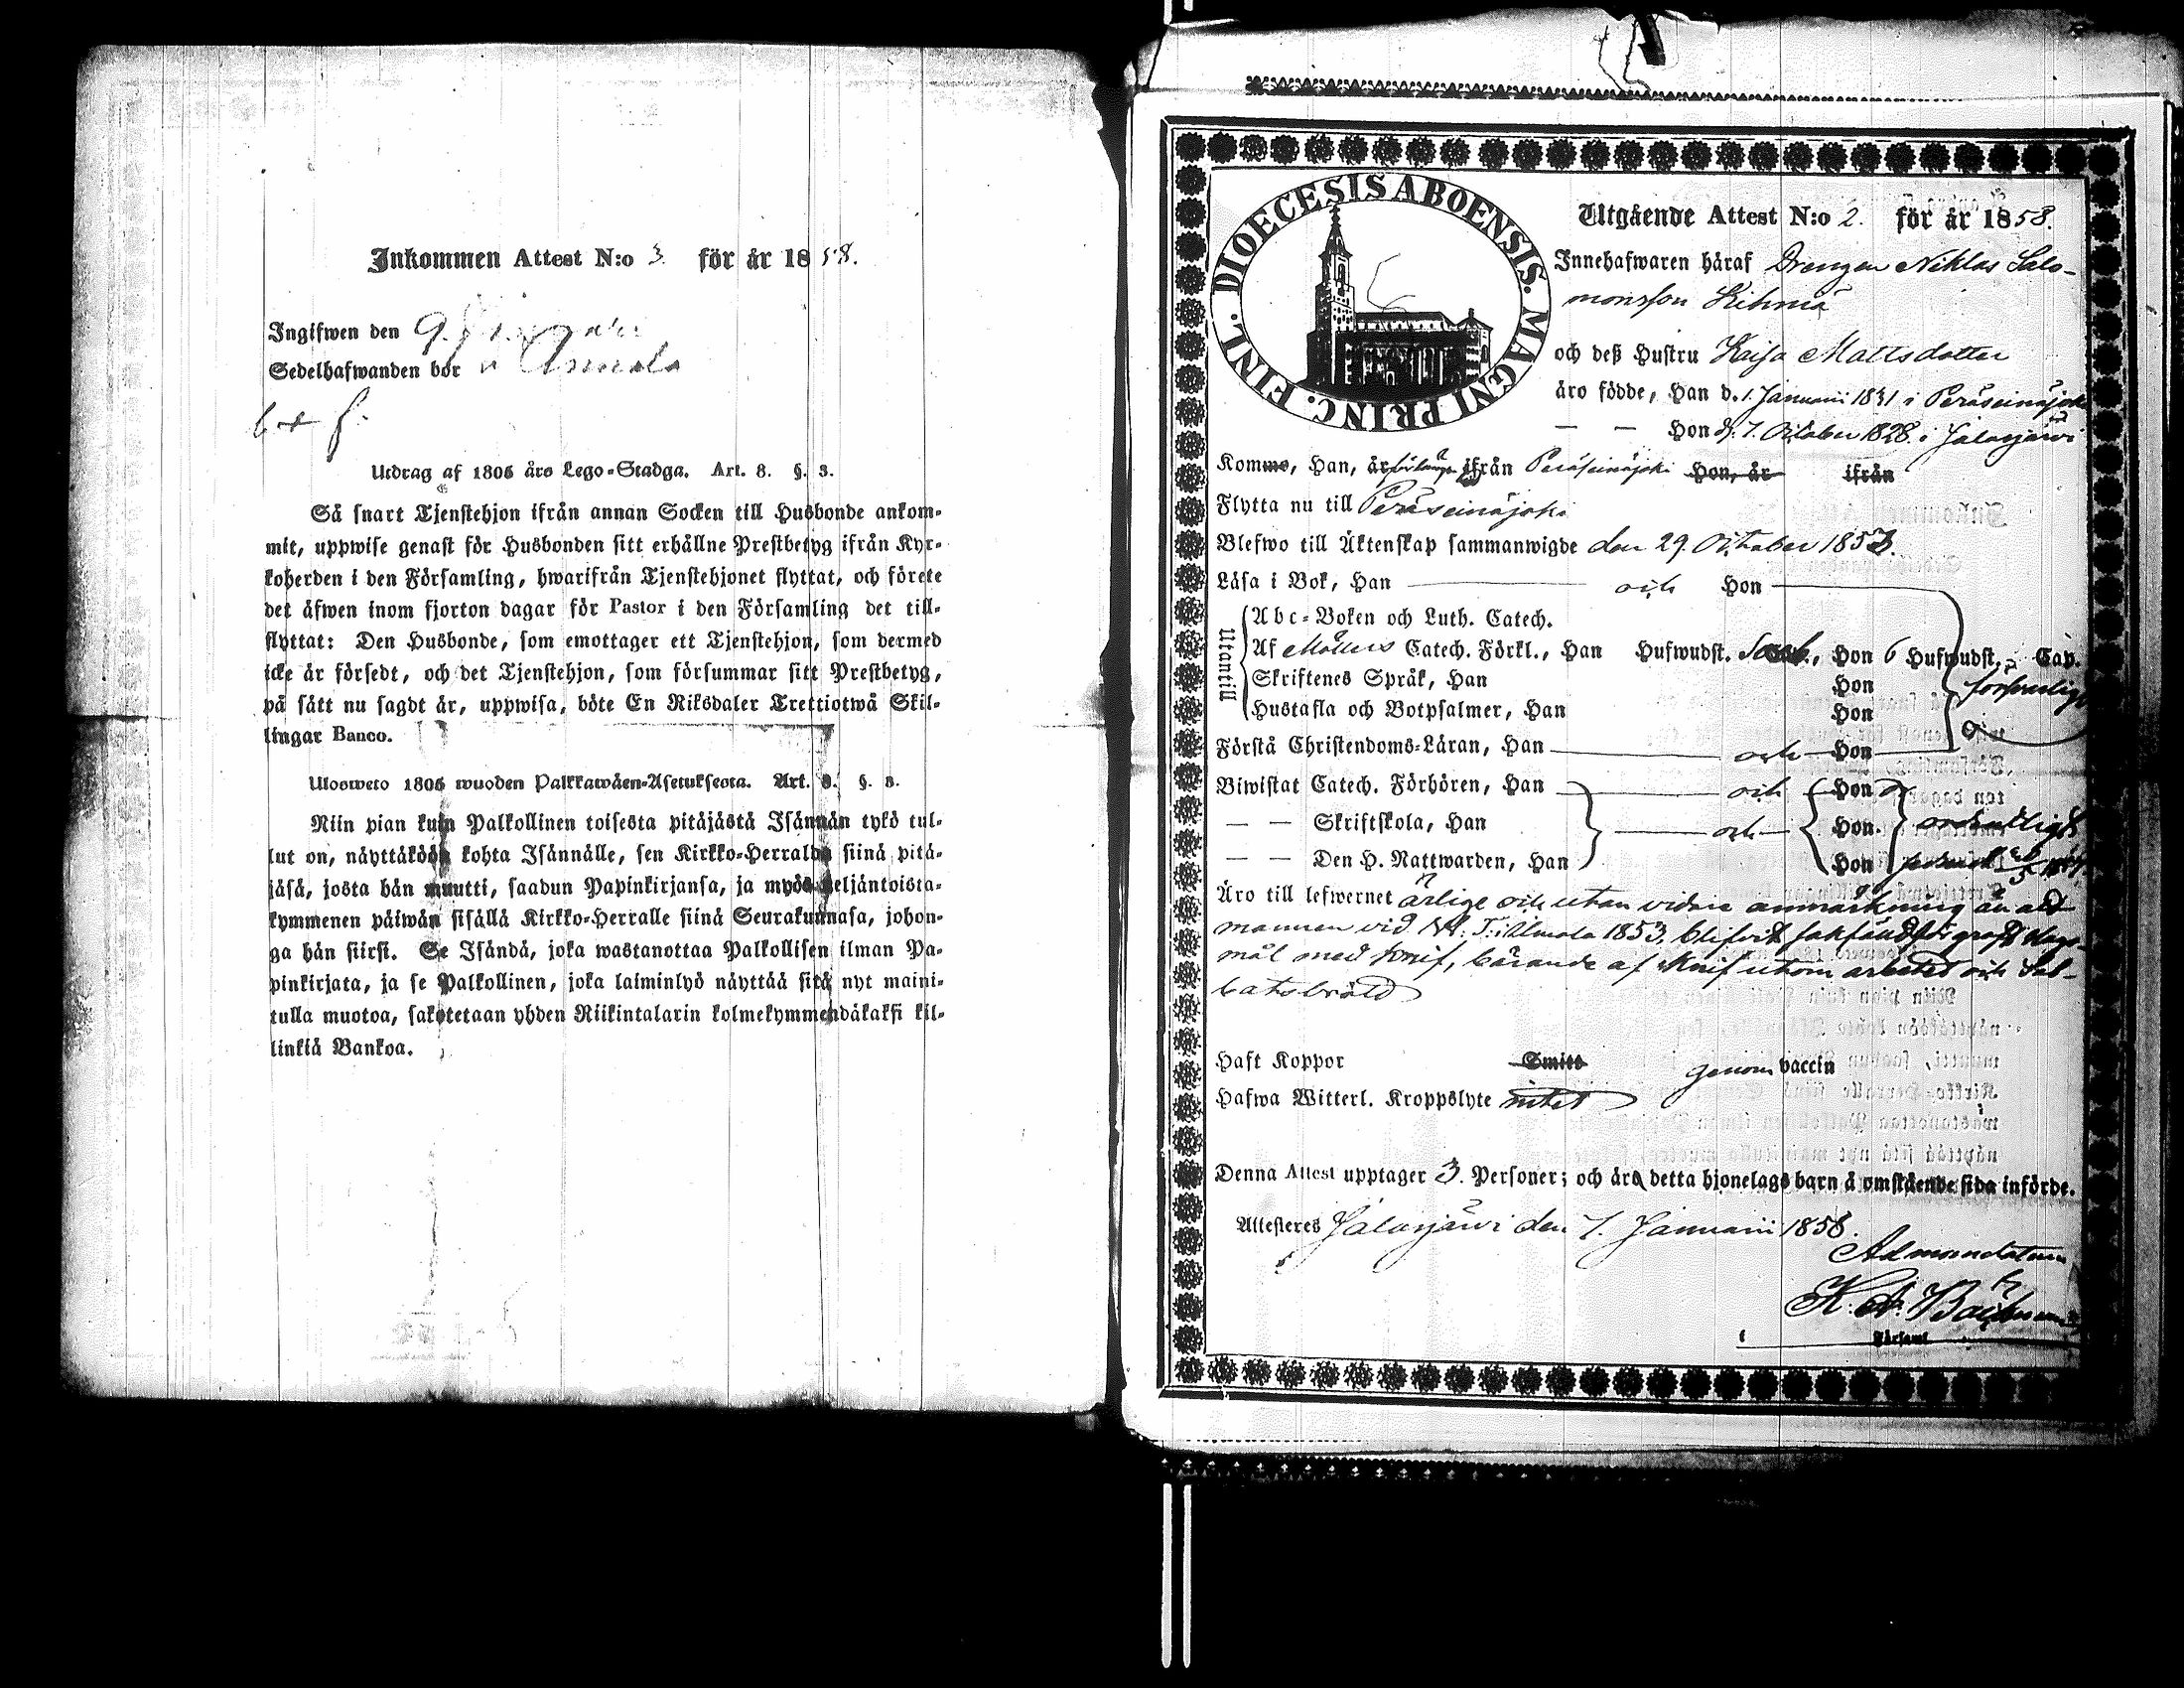 Inkommen Attest N:o 3. för år 1858.
Ingifwen den 9.
Sedelhafwanden bor
Utdrag af 1805 års Lego-Stadga. Art. 8. §. 3.
Så snart Tjenstehjon ifrån annan Socken till Husbonde ankom-
mit, uppwise genast för Husbonden sitt erhållne Prestbetyg ifrån Kyr-
koherden i den Församling, hwarifrån Tjenstehjonet flyttat, och förete
det äfwen inom fjorton dagar för Pastor i den Församling det till-
flyttat: Den Husbonde, som emottager ett Tjenstehjon, som dermed
icke är försedt, och det Tjenstehjon, som försummar sitt Prestbetyg,
på sätt nu sagdt är, uppwisa, böte En Riksdaler Trettiotwå Skil-
lingar Banco.
Ulosweto 1805 wuoden Palkkawäen-Asetuksesta. Art. 8. §. 3.
Niin pian kuin Palkollinen toisesta pitäjästä Isännän tykö tul-
lut on, näyttäköön kohta Isännälle, sen Kirkko-Herralda siinä pitä-
jäsä, josta hän muutti, saadun Papinkirjansa, ja myös neljäntoista-
kymmenen päiwän sisällä Kirkko-Herralle siinä Seurakunnasa, johon-
ga hän siirsi. Se Isändä, joka wastanottaa Palkollisen ilman Pa-
pinkirjata, ja se Palkollinen, joka laiminlyö näyttää sitä nyt maini-
tulla muotoa, sakotetaan yhden Riikintalarin kolmekymmendäkaksi kil-
linkiä Bankoa.
DIOECESIS ABOENSIS. MAGNI PRINC. FINL.
Utgående Attest N:o 2. för år 1858.
Innehafwaren häraf Drengen Niklas Salo-
monsson
och deß Hustru Kaisa Mattsdotter
äro födde, Han d. 1. Januarii 1831 i Peräseinäjoki
— — Hon d. 7. October 1828 i Jalasjärwi
Komme, Han, år ifrån Peräseinäjoki Hon, år ifrån
Flytta nu till Peräseinäjoki
Blefwo till Äktenskap sammanwigde den 29. October 1853.
Läsa i Bok, Han och Hon
Utantill
Abc-Boken och Luth. Catech.
Af Möllers Catech. Förkl., Han Hufwudst. Hon 6 Hufwudst., Cap.
Skriftenes Språk, Han Hon försvarligt
Hustafla och Botpsalmer, Han Hon
Förstå Christendoms-Läran, Han och Hon
Biwistat Catech. Förhören, Han och Hon
— — Skriftskola, Han och Hon ordentligt
— — Den H. Nattwarden, Han Hon
Äro till lefwernet ärlige och utan vidare anmärkning än att
mannen vid W. T. i Ilmola 1853, blifvit sakfälld för groft slags-
mål med knif, bärande af knif utom arbetet och Sab-
batsbrott
Haft Koppor Smitt genom vaccin
Hafwa Witterl. Kroppslyte intet
Denna Attest upptager 3. Personer; och äro detta hjonelags barn å omstående sida införde.
Attesteres Jalasjärwi den 7. Januarii 1858.
Ad mandatum
K. A.
Församl